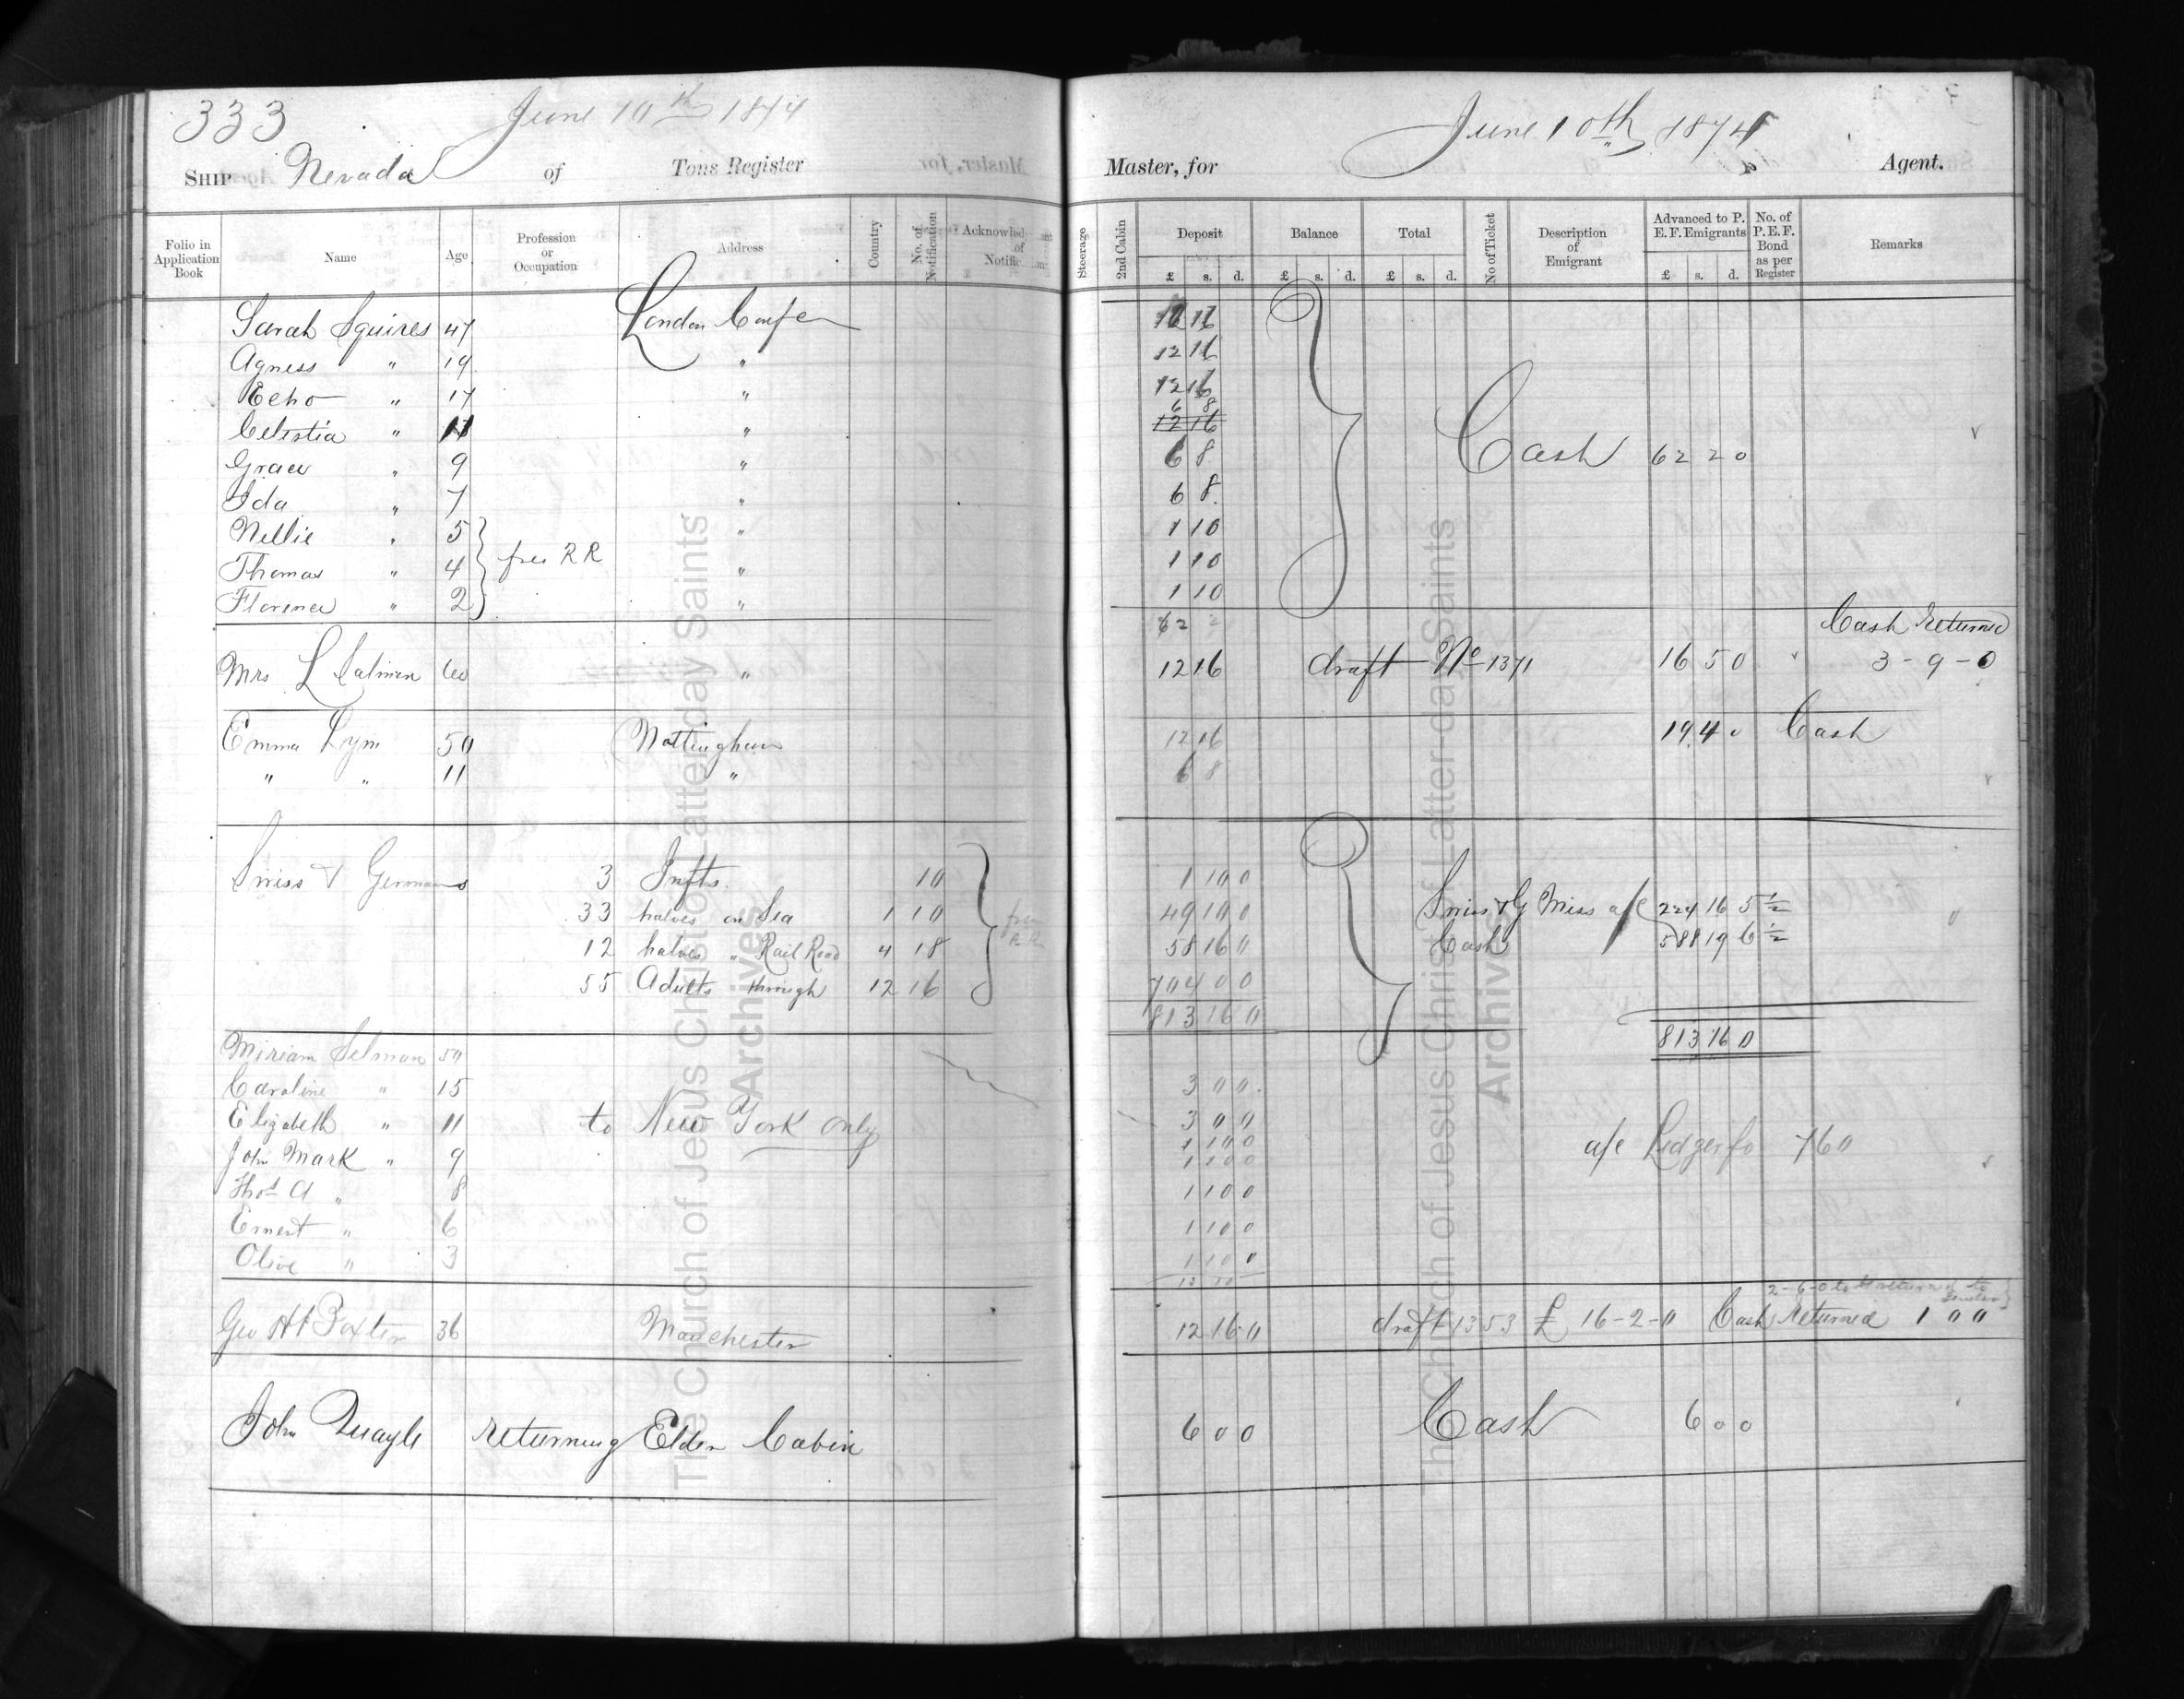 333 June 10th 1874
Ship Nevada of Tons Register
Folio in Application Book Name Age Profession or Occupation Address Country No. of Notification Acknowled of Notific
Sarah Squires 47 London Confe
Agness " 19 "
Echo " 17 "
Celestia " 11 "
Grace " 9 "
Ida " 7 "
Nellie " 5 "
Thomas " 4 free R R "
Florence " 2 "
Mrs L Salmon 60 "
Emma Lym 50 Nottingham
" " 11 "
Swiss & Germans 3 Infts. 10
33 halves on Sea 1 10 free R R
12 halves " Rail Road 4 18
55 Adults through 12 16
Miriam Selman 50
Caroline " 15
Elizabeth " 11 to New York only
John Mark " 9
Thos A " 8
Ernest " 6
Olive " 3
Geo H Baxter 36 Manchester
John Quayle returning Elder Cabin
June 10th 1874
Master, for Agent.
Steerage 2nd Cabin Deposit £ s. d. Balance £ s. d. Total £ s. d. No of Ticket Description of Emigrant Advanced to P. E. F. Emigrants £ s. d. No. of P. E. F. Bond as per Register Remarks
12 16
12 16
12 16
6 8
12 16
6 8 Cash 62 2 0
6 8
1 10
1 10
1 10
62 2 Cash Returned
12 16 draft No 1371 16 5 0 3-9-0
12 16 19 4 0 Cash
6 8
1 10 0
49 10 0 Swiss & G Miss a/c 224 16 5 1/2
58 16 0 Cash 588 19 6 1/2
704 0 0
813 16 0
813 16 0
3 0 0
3 0 0
1 10 0 a/c Ledger fo 760
1 10 0
1 10 0
1 10 0
1 10 0
2-6-0 to be returned to
12 16 0 draft 1353 £ 16-2-0 Cash Returned 1 0 0
6 0 0 Cash 6 0 0
The Church of Jesus Christ of Latter-day Saints
Archives
The Church of Jesus Christ of Latter-day Saints
Archives